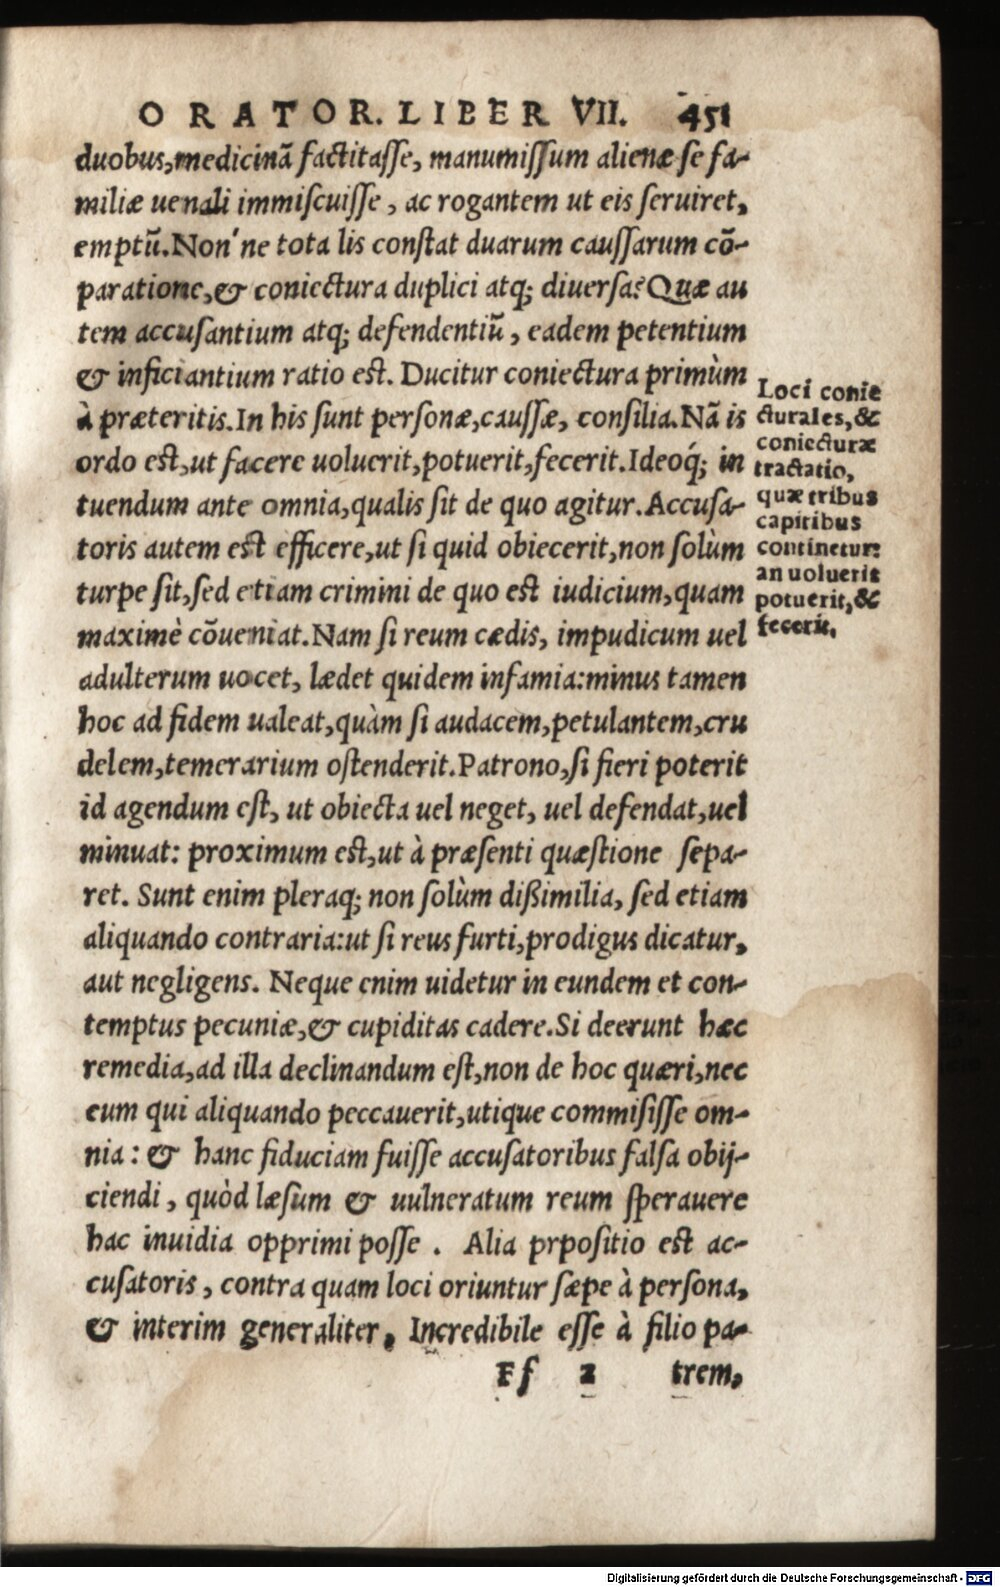 ORATOR. LIBER VII. 451
duobus, medicinā factitasse, manumissum alienæ se fa-
miliæ uenali immiscuisse, ac rogantem ut eis seruiret,
emptū. Non'ne tota lis constat duarum caussarum cō-
paratione, & coniectura duplici atq; diuersa? Quæ au
tem accusantium atq; defendentiū, eadem petentium
& inficiantium ratio est. Ducitur coniectura primùm
à præteritis. In his sunt personæ, caussæ, consilia. Nā is
ordo est, ut facere uoluerit, potuerit, fecerit. Ideoq́; in
tuendum ante omnia, qualis sit de quo agitur. Accusa-
toris autem est efficere, ut si quid obiecerit, non solùm
turpe sit, sed etiam crimini de quo est iudicium, quam
maximè cōueniat. Nam si reum cædis, impudicum uel
adulterum uocet, lædet quidem infamia: minus tamen
hoc ad fidem ualeat, quàm si audacem, petulantem, cru
delem, temerarium ostenderit. Patrono, si fieri poterit
id agendum est, ut obiecta uel neget, uel defendat, uel
minuat: proximum est, ut à præsenti quæstione sepa-
ret. Sunt enim pleraq; non solùm dißimilia, sed etiam
aliquando contraria: ut si reus furti, prodigus dicatur,
aut negligens. Neque enim uidetur in eundem et con-
temptus pecuniæ, & cupiditas cadere. Si deerunt hæc
remedia, ad illa declinandum est, non de hoc quæri, nec
eum qui aliquando peccauerit, utique commisisse om-
nia: & hanc fiduciam fuisse accusatoribus falsa obij-
ciendi, quòd læsum & uulneratum reum sperauere
hac inuidia opprimi posse. Alia prpositio est ac-
cusatoris, contra quam loci oriuntur sæpe à persona,
& interim generaliter. Incredibile esse à filio pa-
Ff 2 trem,
Loci conie
cturales, &
coniecturæ
tractatio,
quæ tribus
capitibus
continetur:
an uoluerit
potuerit, &
fecerit.
Digitalisierung gefördert durch die Deutsche Forschungsgemeinschaft - DFG